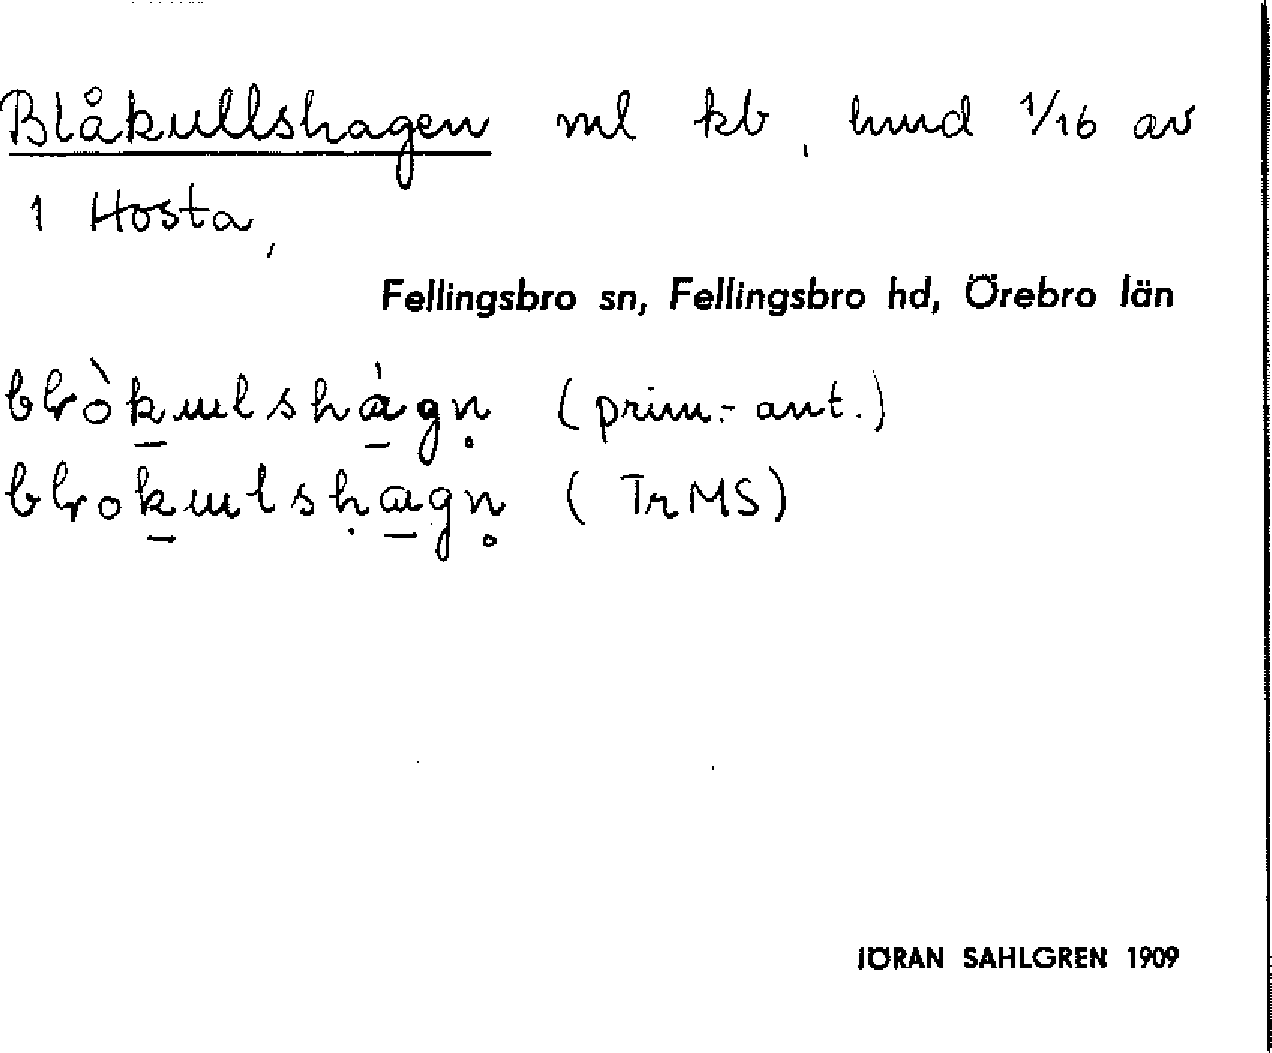 Blåkullshagen ml kb, hmd 1/16 av
1 Hosta,
Fellingsbro sn, Fellingsbro hd, Örebro län
(prim.- ant.)
(TrMS)
JÖRAN SAHLGREN 1909